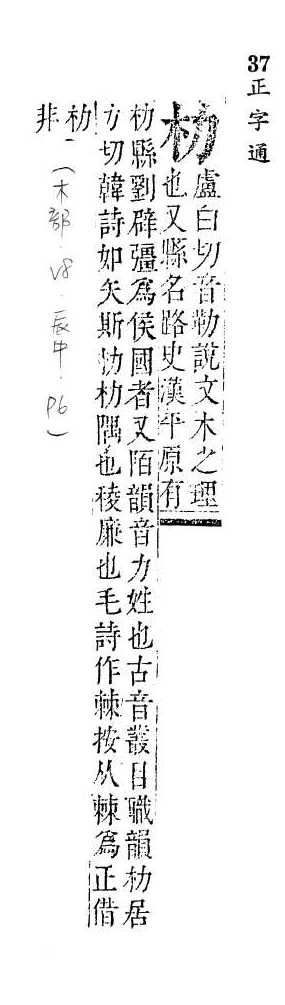 37 正字通
朸
盧白切音勒說文木之理
也又縣名路史漢平原有
朸縣劉辟彊為侯國者又陌韻音力姓也古音叢目職韻朸居
力切韓詩如矢斯朸朸隅也稜廉也毛詩作棘按从棘為正借
朸非
(木部.V8.辰中.P6)